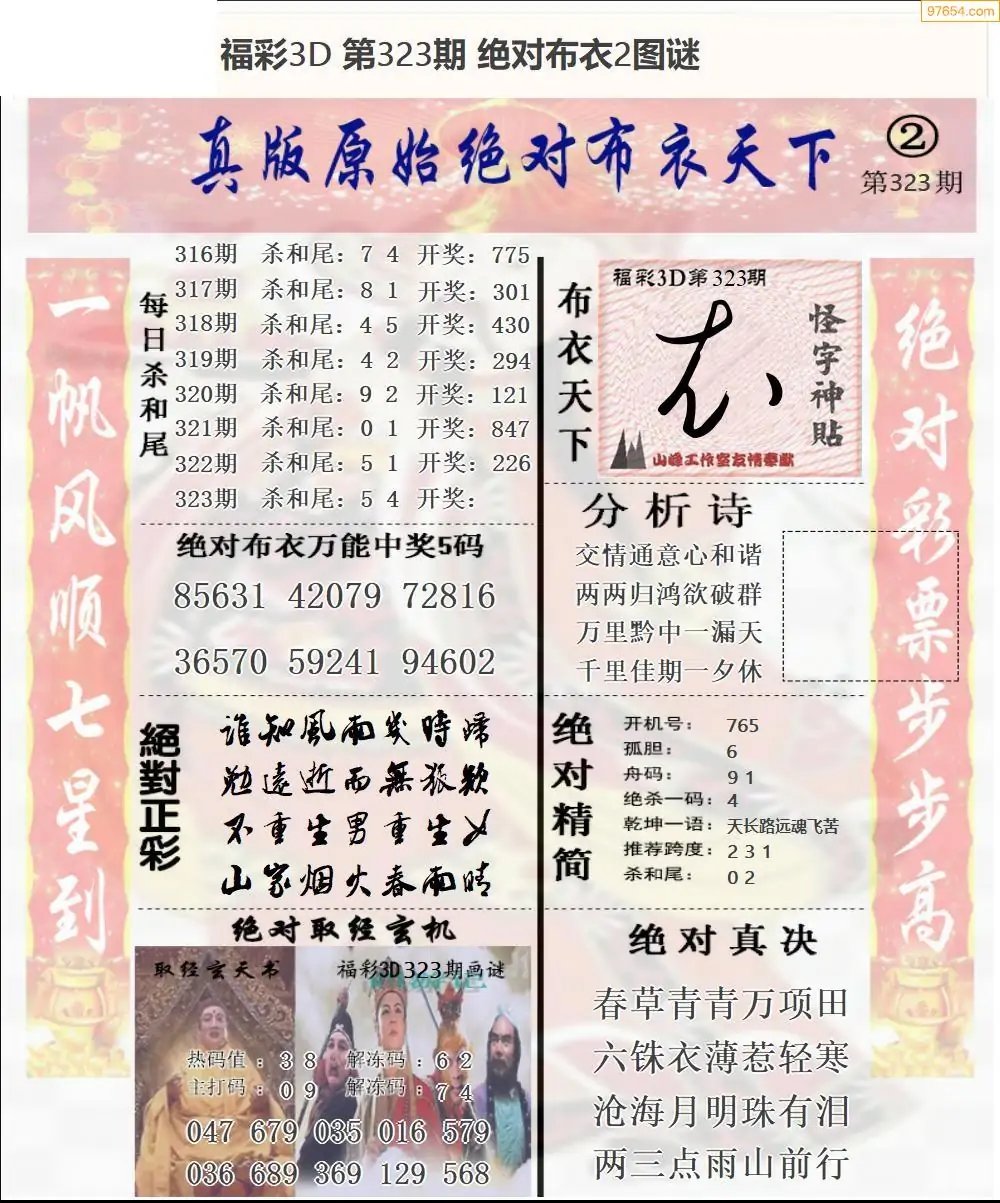 97654.com
福彩3D 第323期 绝对布衣2图谜
真版原始绝对布衣天下
②
第323期
一帆风顺七星到
每日杀和尾
316期 杀和尾：7 4 开奖：775
317期 杀和尾：8 1 开奖：301
318期 杀和尾：4 5 开奖：430
319期 杀和尾：4 2 开奖：294
320期 杀和尾：9 2 开奖：121
321期 杀和尾：0 1 开奖：847
322期 杀和尾：5 1 开奖：226
323期 杀和尾：5 4 开奖：
绝对布衣万能中奖5码
85631 42079 72816
36570 59241 94602
絕對正彩
谁知風雨幾時歸
勉遠逝而無狐疑
不重生男重生女
山家烟火春雨晴
绝对取经玄机
取经玄天书
福彩3D323期画谜
热码值：3 8 解冻码：6 2
主打码：0 9 解冻码：7 4
047 679 035 016 579
036 689 369 129 568
布衣天下
福彩3D第323期
怪字神贴
山峰工作室友情奉献
分析诗
交情通意心和谐
两两归鸿欲破群
万里黔中一漏天
千里佳期一夕休
绝对精简
开机号：765
孤胆：6
舟码：9 1
绝杀一码：4
乾坤一语：天长路远魂飞苦
推荐跨度：2 3 1
杀和尾：0 2
绝对真决
春草青青万项田
六铢衣薄惹轻寒
沧海月明珠有泪
两三点雨山前行
绝对彩票步步高